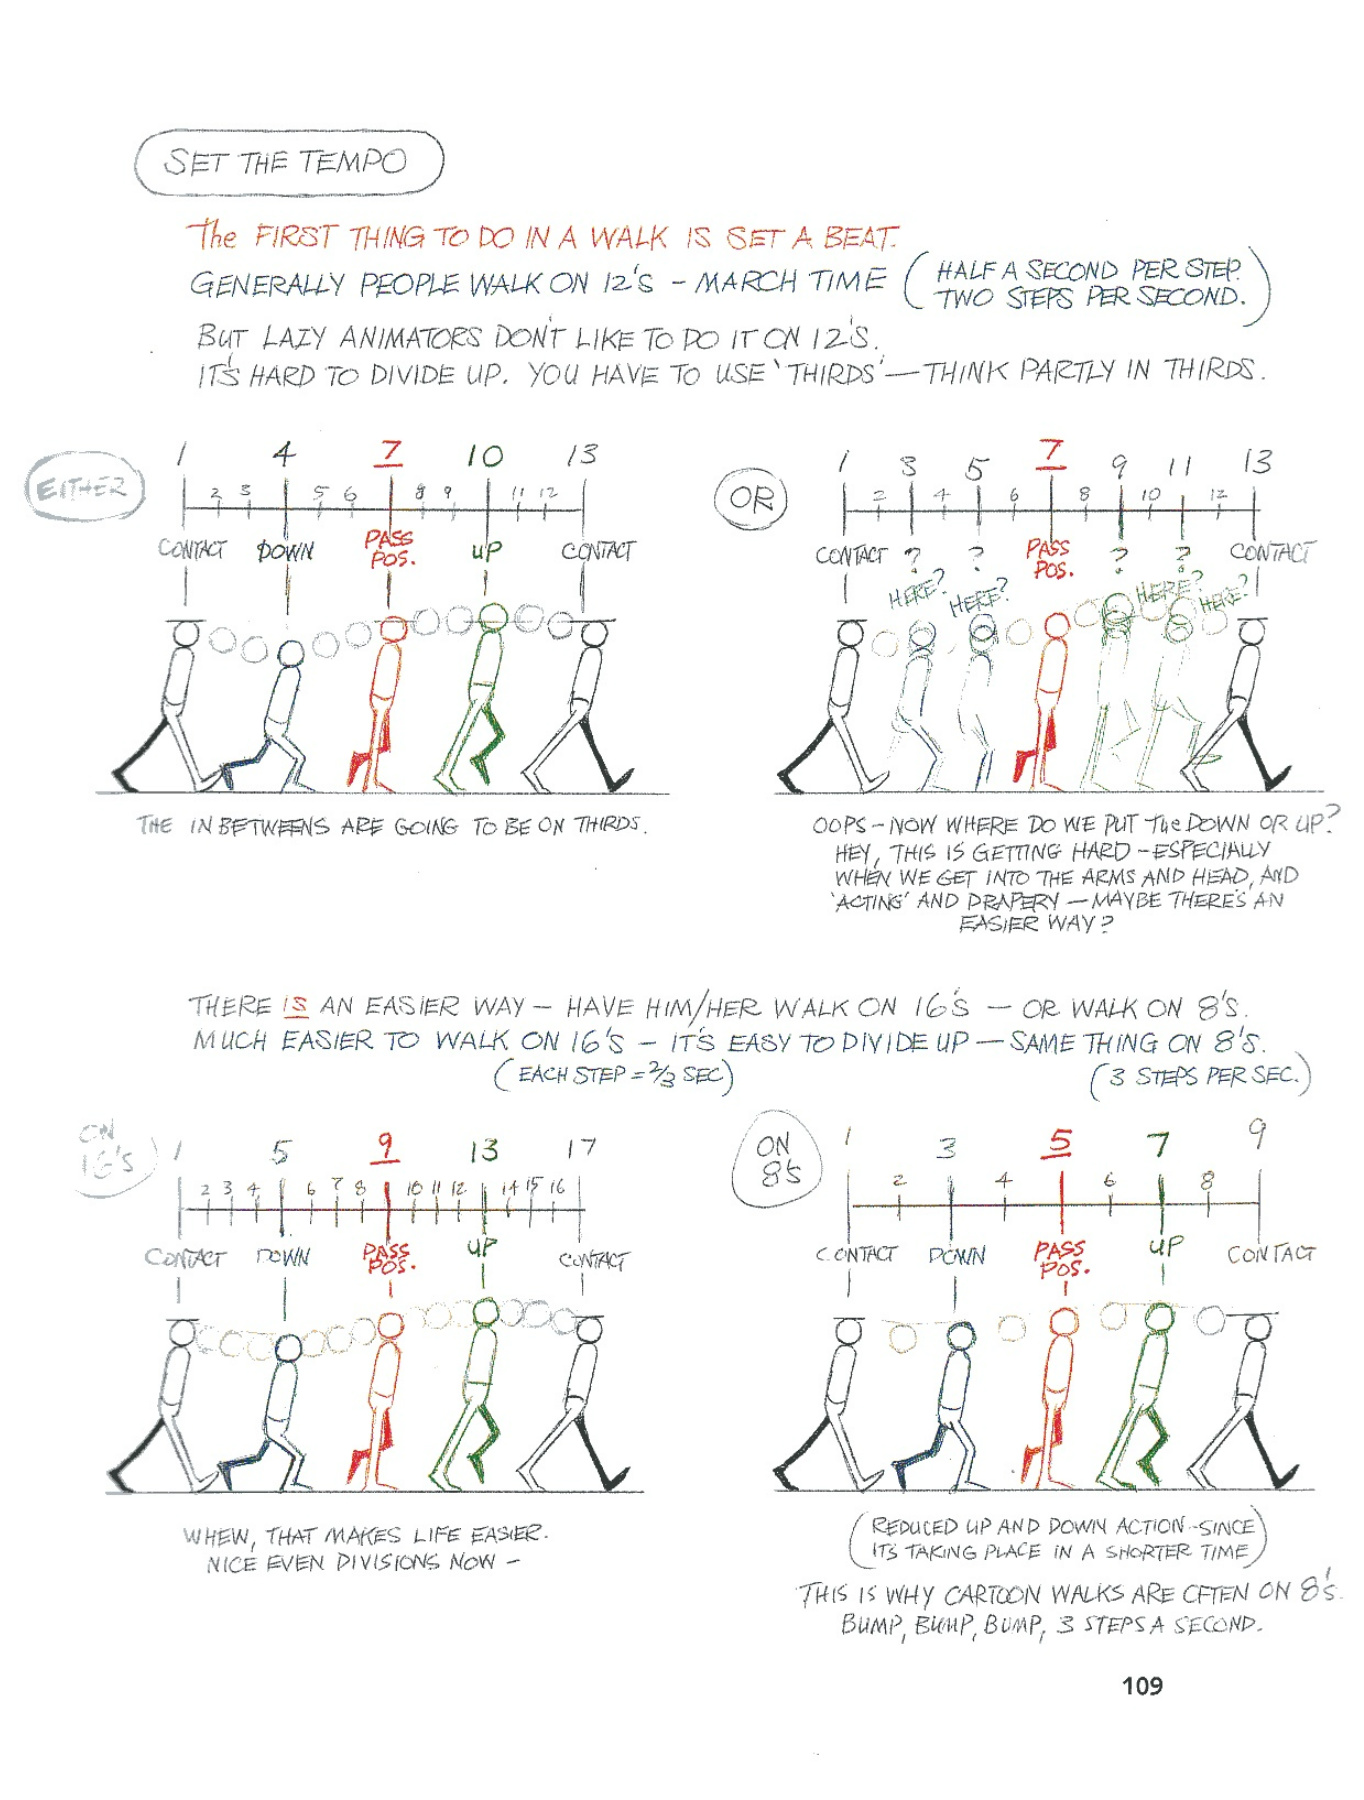 SET THE TEMPO
The FIRST THING TO DO IN A WALK IS SET A BEAT.
GENERALLY PEOPLE WALK ON 12'S - MARCH TIME (HALF A SECOND PER STEP.
TWO STEPS PER SECOND.)
BUT LAZY ANIMATORS DON'T LIKE TO DO IT ON 12'S.
IT'S HARD TO DIVIDE UP. YOU HAVE TO USE 'THIRDS' — THINK PARTLY IN THIRDS.
EITHER
1 4 7 10 13
2 3 5 6 8 9 11 12
CONTACT DOWN PASS POS. UP CONTACT
THE INBETWEENS ARE GOING TO BE ON THIRDS.
OR
1 3 5 7 9 11 13
2 4 6 8 10 12
CONTACT ? ? PASS POS. ? ? CONTACT
HERE? HERE? HERE? HERE?
OOPS - NOW WHERE DO WE PUT The DOWN OR UP?
HEY, THIS IS GETTING HARD - ESPECIALLY
WHEN WE GET INTO THE ARMS AND HEAD, AND
'ACTING' AND DRAPERY — MAYBE THERE'S AN
EASIER WAY?
THERE IS AN EASIER WAY — HAVE HIM/HER WALK ON 16'S — OR WALK ON 8'S.
MUCH EASIER TO WALK ON 16'S - IT'S EASY TO DIVIDE UP — SAME THING ON 8'S.
(EACH STEP = 2/3 SEC) (3 STEPS PER SEC.)
ON
16'S
1 5 9 13 17
2 3 4 6 7 8 10 11 12 14 15 16
CONTACT DOWN PASS POS. UP CONTACT
WHEW, THAT MAKES LIFE EASIER.
NICE EVEN DIVISIONS NOW -
ON
8'S
1 3 5 7 9
2 4 6 8
CONTACT DOWN PASS POS. UP CONTACT
(REDUCED UP AND DOWN ACTION - SINCE
ITS TAKING PLACE IN A SHORTER TIME)
THIS IS WHY CARTOON WALKS ARE OFTEN ON 8'S.
BUMP, BUMP, BUMP, 3 STEPS A SECOND.
109